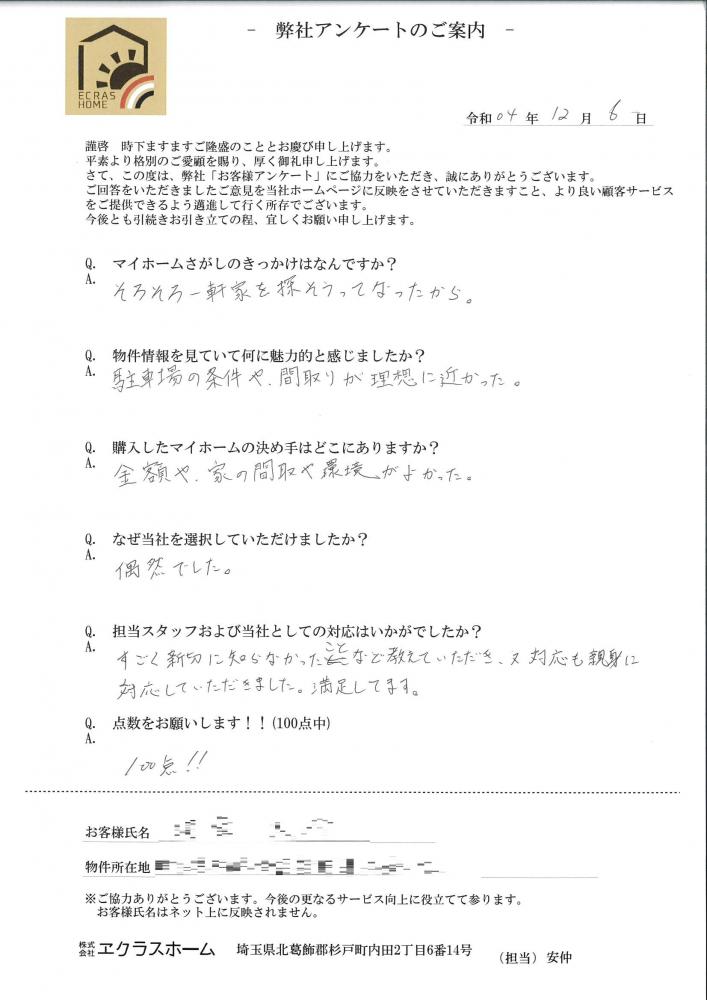 ECRAS
HOME
- 弊社アンケートのご案内 -
令和 04 年 12 月 6 日
謹啓　時下ますますご隆盛のこととお慶び申し上げます。
平素より格別のご愛顧を賜り、厚く御礼申し上げます。
さて、この度は、弊社「お客様アンケート」にご協力をいただき、誠にありがとうございます。
ご回答をいただきましたご意見を当社ホームページに反映をさせていただきますこと、より良い顧客サービス
をご提供できるよう邁進して行く所存でございます。
今後とも引続きお引き立ての程、宜しくお願い申し上げます。
Q. マイホームさがしのきっかけはなんですか？
A. そろそろ一軒家を探そうってなったから。
Q. 物件情報を見ていて何に魅力的と感じましたか？
A. 駐車場の条件や、間取りが理想に近かった。
Q. 購入したマイホームの決め手はどこにありますか？
A. 金額や、家の間取や環境がよかった。
Q. なぜ当社を選択していただけましたか？
A. 偶然でした。
Q. 担当スタッフおよび当社としての対応はいかがでしたか？
A. すごく新切に知らなかったことなど教えていただき、又対応も親身に
対応していただきました。満足してます。
Q. 点数をお願いします！！(100点中)
A.
100点!!
お客様氏名
物件所在地
※ご協力ありがとうございます。今後の更なるサービス向上に役立てて参ります。
お客様氏名はネット上に反映されません。
株式会社 ヱクラスホーム　埼玉県北葛飾郡杉戸町内田2丁目6番14号　（担当）安仲